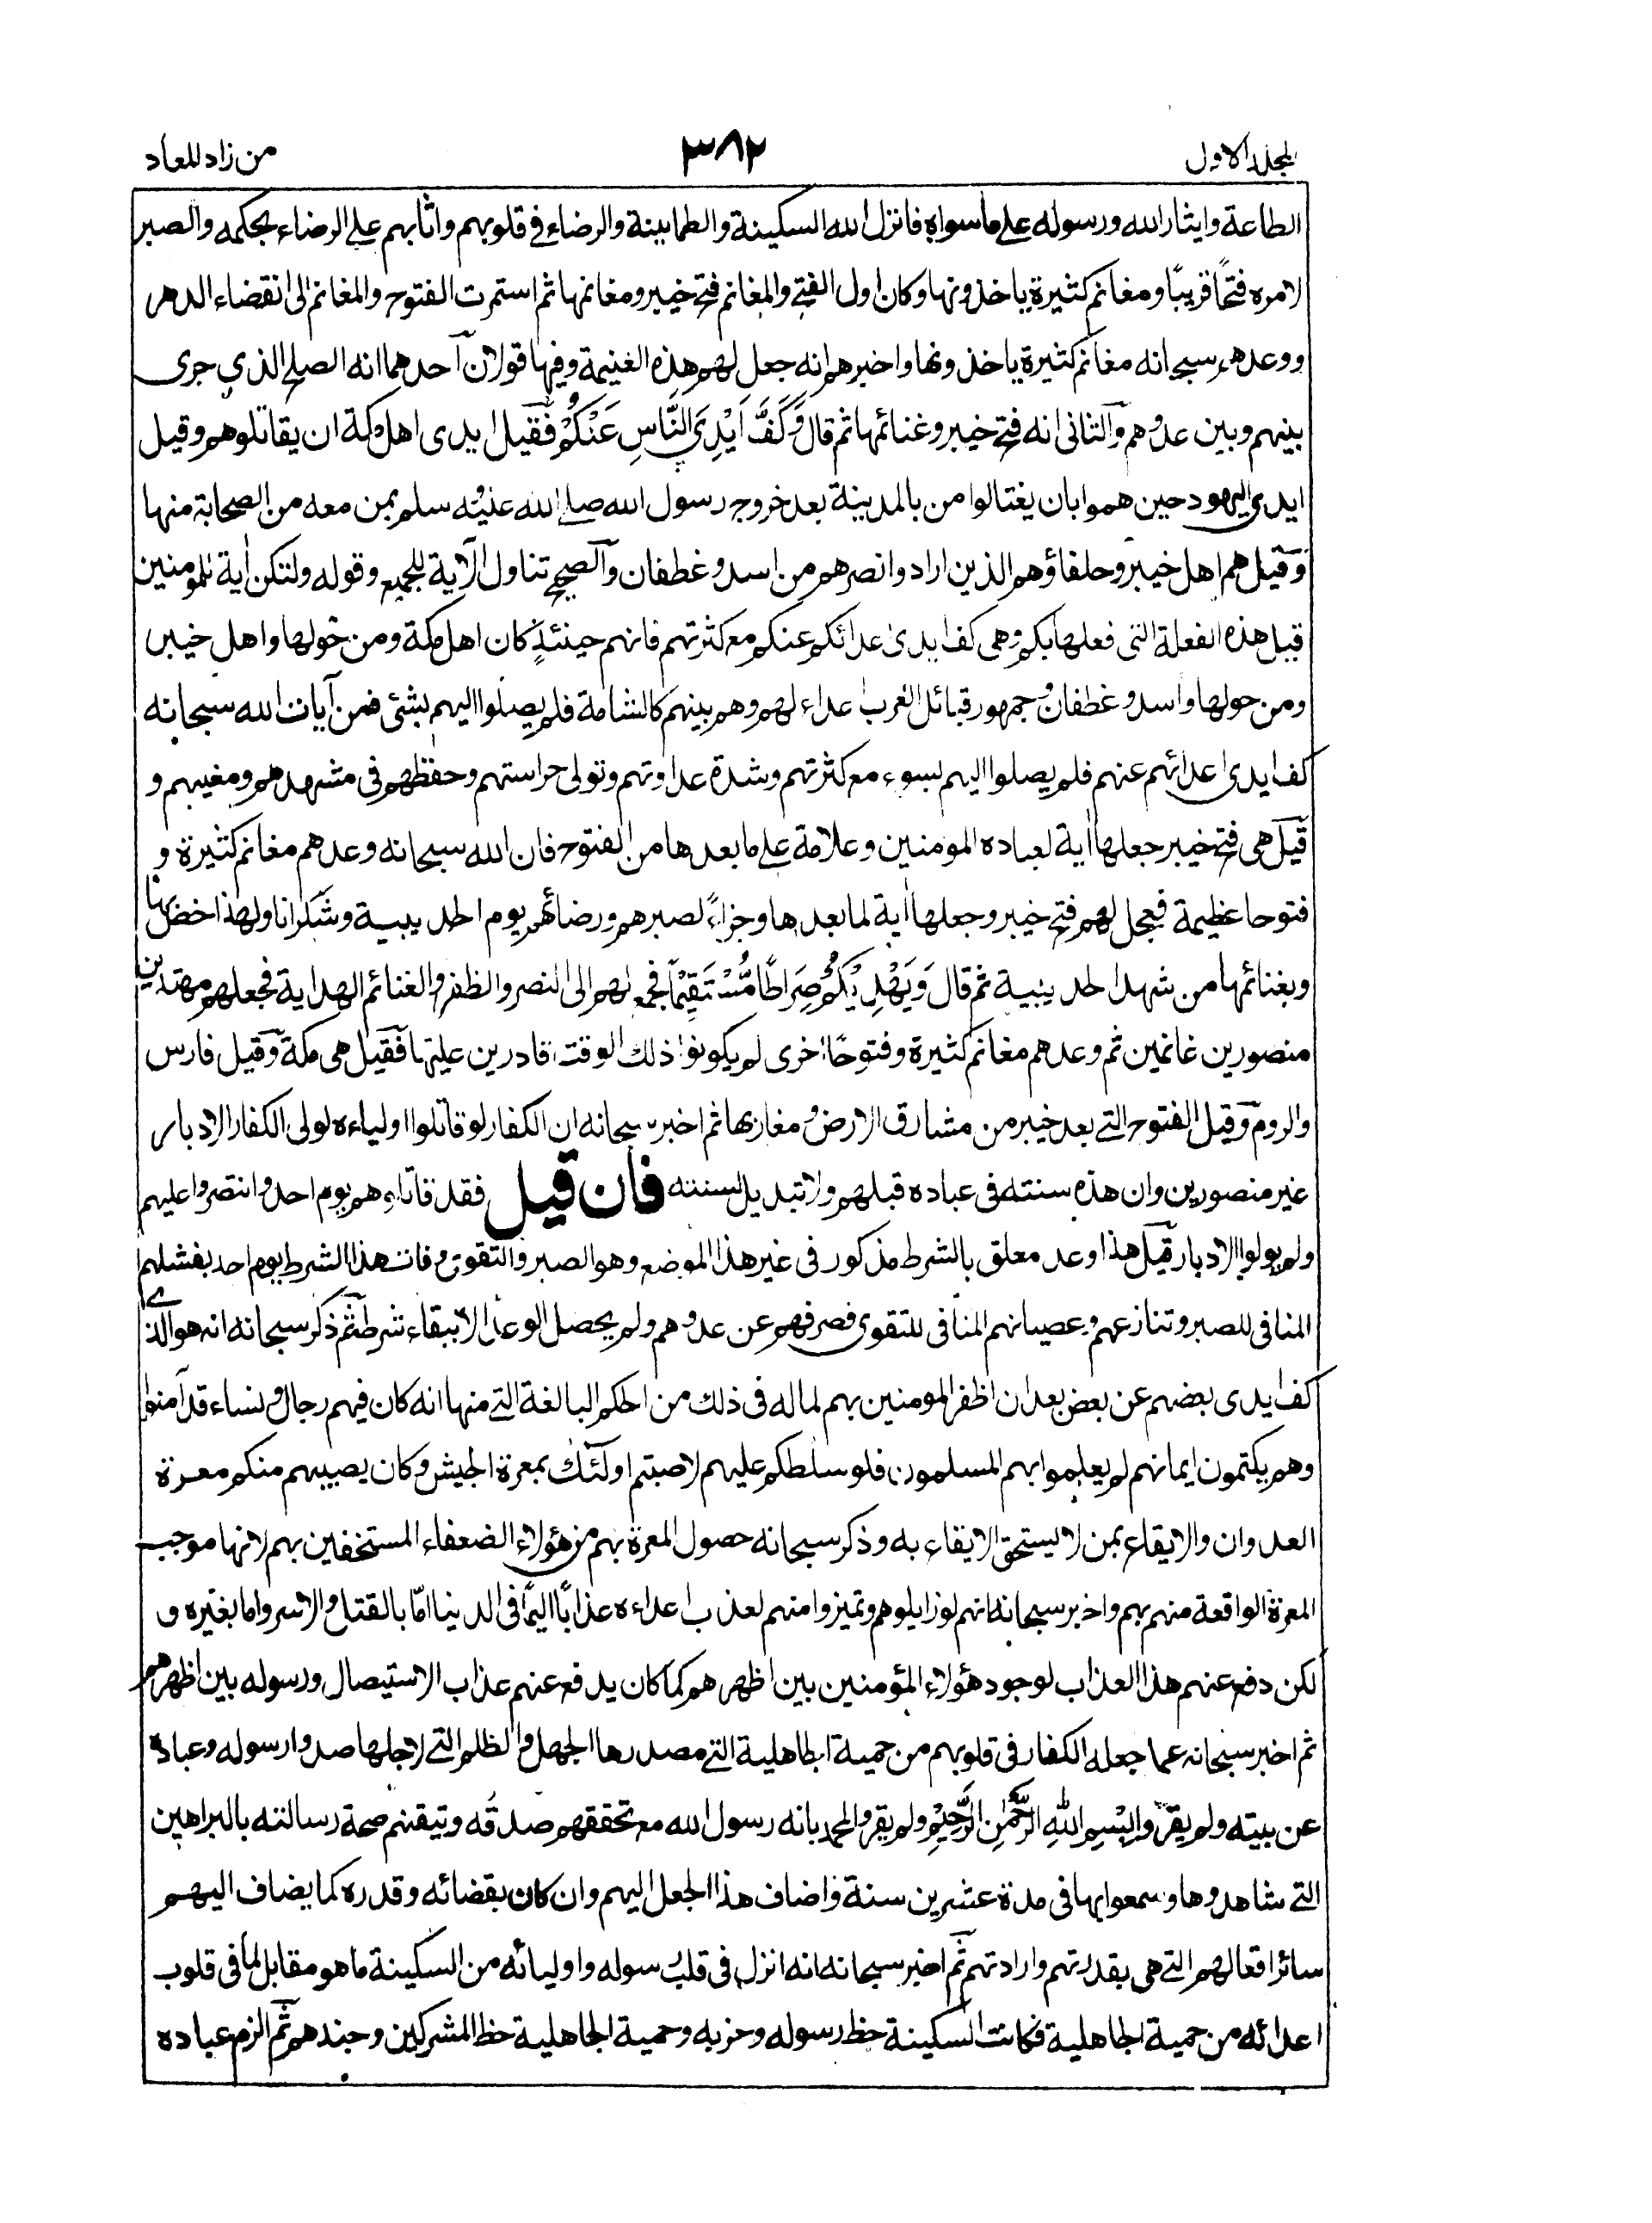 المجلد الاول ٣٨٢ من زاد المعاد
الطاعة وايثار الله ورسوله على ما سواه فانزل الله السكينة والطمانينة والرضاء في قلوبهم واثابهم على الرضاء بحكمه والصبر
لامره فتحًا قريبًا ومغانم كثيرة ياخذونها وكان اول الفتح والمغانم فتح خيبر ومغانمها ثم استمرت الفتوح والمغانم الى انقضاء الدهر
ووعدهم سبحانه مغانم كثيرة ياخذونها واخبرهم انه جعل لهم هذه الغنيمة وفيها قولان احدهما انه الصلح الذي جرى
بينهم وبين عدوهم والثانى انه فتح خيبر وغنائمها ثم قال وَكَفَّ اَيْدِىَ النَّاسِ عَنْكُمْ فقيل ايدى اهل مكة ان يقاتلوهم وقيل
ايدى اليهود حين هموا بان يغتالوا من بالمدينة بعد خروج رسول الله صلى الله عليه وسلم بمن معه من الصحابة منها
وقيل هم اهل خيبر وحلفاؤهم الذين ارادوا نصرهم من اسد وغطفان والصحيح تناول الآية للجميع وقوله ولتكن اٰية للمومنين
قيل هذه الفعلة التى فعلها بكم وهى كف ايدى اعدائكم عنكم مع كثرتهم فانهم حينئذٍ كان اهل مكة ومن حولها واهل خيبر
ومن حولها واسد وغطفان وجمهور قبائل العرب اعداء لهم وهم بينهم كالشامة فلم يصلوا اليهم بشئ فمن آيات الله سبحانه
كف ايدى اعدائهم عنهم فلم يصلوا اليهم بسوء مع كثرتهم وشدة عداوتهم وتولى حراستهم وحفظهم فى مشهدهم ومغيبهم و
قيل هى فتح خيبر جعلها اٰية لعباده المومنين وعلامة على ما بعدها من الفتوح فان الله سبحانه وعدهم مغانم كثيرة و
فتوحا عظيمة فعجل لهم فتح خيبر وجعلها اٰية لما بعدها وجزاءً لصبرهم ورضائهم يوم الحديبية وشكرانا ولهذا خص بها
وبغنائمها من شهد الحديبية ثم قال وَيَهْدِيَكُمْ صِرَاطًا مُّسْتَقِيْمًا فجمع لهم الى النصر والظفر والغنائم الهداية فجعلهم مهتدين
منصورين غانمين ثم وعدهم مغانم كثيرة وفتوحًا اخرى لم يكونوا ذلك الوقت قادرين عليها فقيل هى مكة وقيل فارس
والروم وقيل الفتوح التى بعد خيبر من مشارق الارض ومغاربها ثم اخبر سبحانه ان الكفار لو قاتلوا اولياءه لولى الكفار الادبار
غير منصورين وان هذه سنته فى عباده قبلهم ولا تبديل لسنته فان قيل فقد قاتلوهم يوم احد وانتصروا عليهم
ولم يولوا الادبار قيل هذا وعد معلق بالشرط مذكور فى غير هذا الموضع وهو الصبر والتقوى وفات هذا الشرط يوم احد بفشلهم
المنافى للصبر وتنازعهم وعصيانهم المنافى للتقوى فصرفهم عن عدوهم ولم يحصل الوعد لانتفاء شرطه ثم ذكر سبحانه انه هو الذي
كف ايدى بعضهم عن بعض بعد ان اظفر المومنين بهم لما له فى ذلك من الحكم البالغة التى منها انه كان فيهم رجال ونساء قد آمنوا
وهم يكتمون ايمانهم لم يعلموا بهم المسلمون فلو سلطكم عليهم لاصبتم اولئك بمعرة الجيش وكان يصيبهم منكم معرة
العدوان والايقاع بمن لا يستحق الايقاع به وذكر سبحانه حصول المعرة بهم من هؤلاء الضعفاء المستخفين بهم لانها موجب
المعرة الواقعة منهم بهم واخبر سبحانه انهم لو زايلوهم وتميزوا منهم لعذب اعداءه عذابًا اليمًا فى الدنيا امّا بالقتل والاسر واما بغيره و
لكن دفع عنهم هذا العذاب لوجود هؤلاء المؤمنين بين اظهرهم كما كان يدفع عنهم عذاب الاستيصال ورسوله بين اظهرهم
ثم اخبر سبحانه عما جعله الكفار فى قلوبهم من حمية الجاهلية التى مصدرها الجهل والظلم التى لاجلها صدوا رسوله وعباده
عن بيته ولم يقروا بِسْمِ اللهِ الرَّحْمٰنِ الرَّحِيْمِ ولم يقروا لمحمد بانه رسول الله مع تحققهم صدقه وتيقنهم صحة رسالته بالبراهين
التى شاهدوها وسمعوا بها فى مدة عشرين سنة واضاف هذا الجعل اليهم وان كان بقضائه وقدره كما يضاف اليهم
سائر افعالهم التى هى بقدرتهم وارادتهم ثم اخبر سبحانه انه انزل فى قلب رسوله واوليائه من السكينة ما هو مقابل لما فى قلوب
اعدائه من حمية الجاهلية فكانت السكينة حظ رسوله وحزبه وحمية الجاهلية حظ المشركين وجندهم ثم الزم عباده